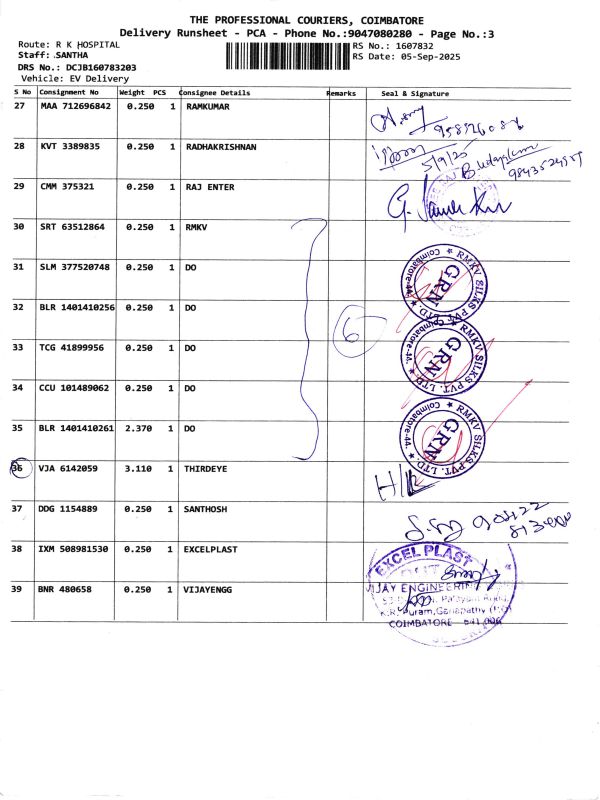 THE PROFESSIONAL COURIERS, COIMBATORE
Delivery Runsheet - PCA - Phone No.:9047080280 - Page No.:3
Route: R K HOSPITAL
RS No.: 1607832
Staff: SANTHA
RS Date: 05-Sep-2025
DRS No.: DCJB160783203
Vehicle: EV Delivery
S No Consignment No Weight PCS Consignee Details Remarks Seal & Signature
27 MAA 712696842 0.250 1 RAMKUMAR
28 KVT 3389835 0.250 1 RADHAKRISHNAN
5/9/25
29 CMM 375321 0.250 1 RAJ ENTER
30 SRT 63512864 0.250 1 RMKV
31 SLM 377520748 0.250 1 DO
RMKV SILKS PVT. LTD. Coimbatore-44. GRN
32 BLR 1401410256 0.250 1 DO
6
33 TCG 41899956 0.250 1 DO
RMKV SILKS PVT. LTD. Coimbatore-44. GRN
34 CCU 101489062 0.250 1 DO
35 BLR 1401410261 2.370 1 DO
RMKV SILKS PVT. LTD. Coimbatore-44. GRN
36 VJA 6142059 3.110 1 THIRDEYE
37 DDG 1154889 0.250 1 SANTHOSH
38 IXM 508981530 0.250 1 EXCELPLAST
EXCEL PLAST
39 BNR 480658 0.250 1 VIJAYENGG
VIJAY ENGINEERING
K.R. Puram, Ganapathy (P.O)
COIMBATORE